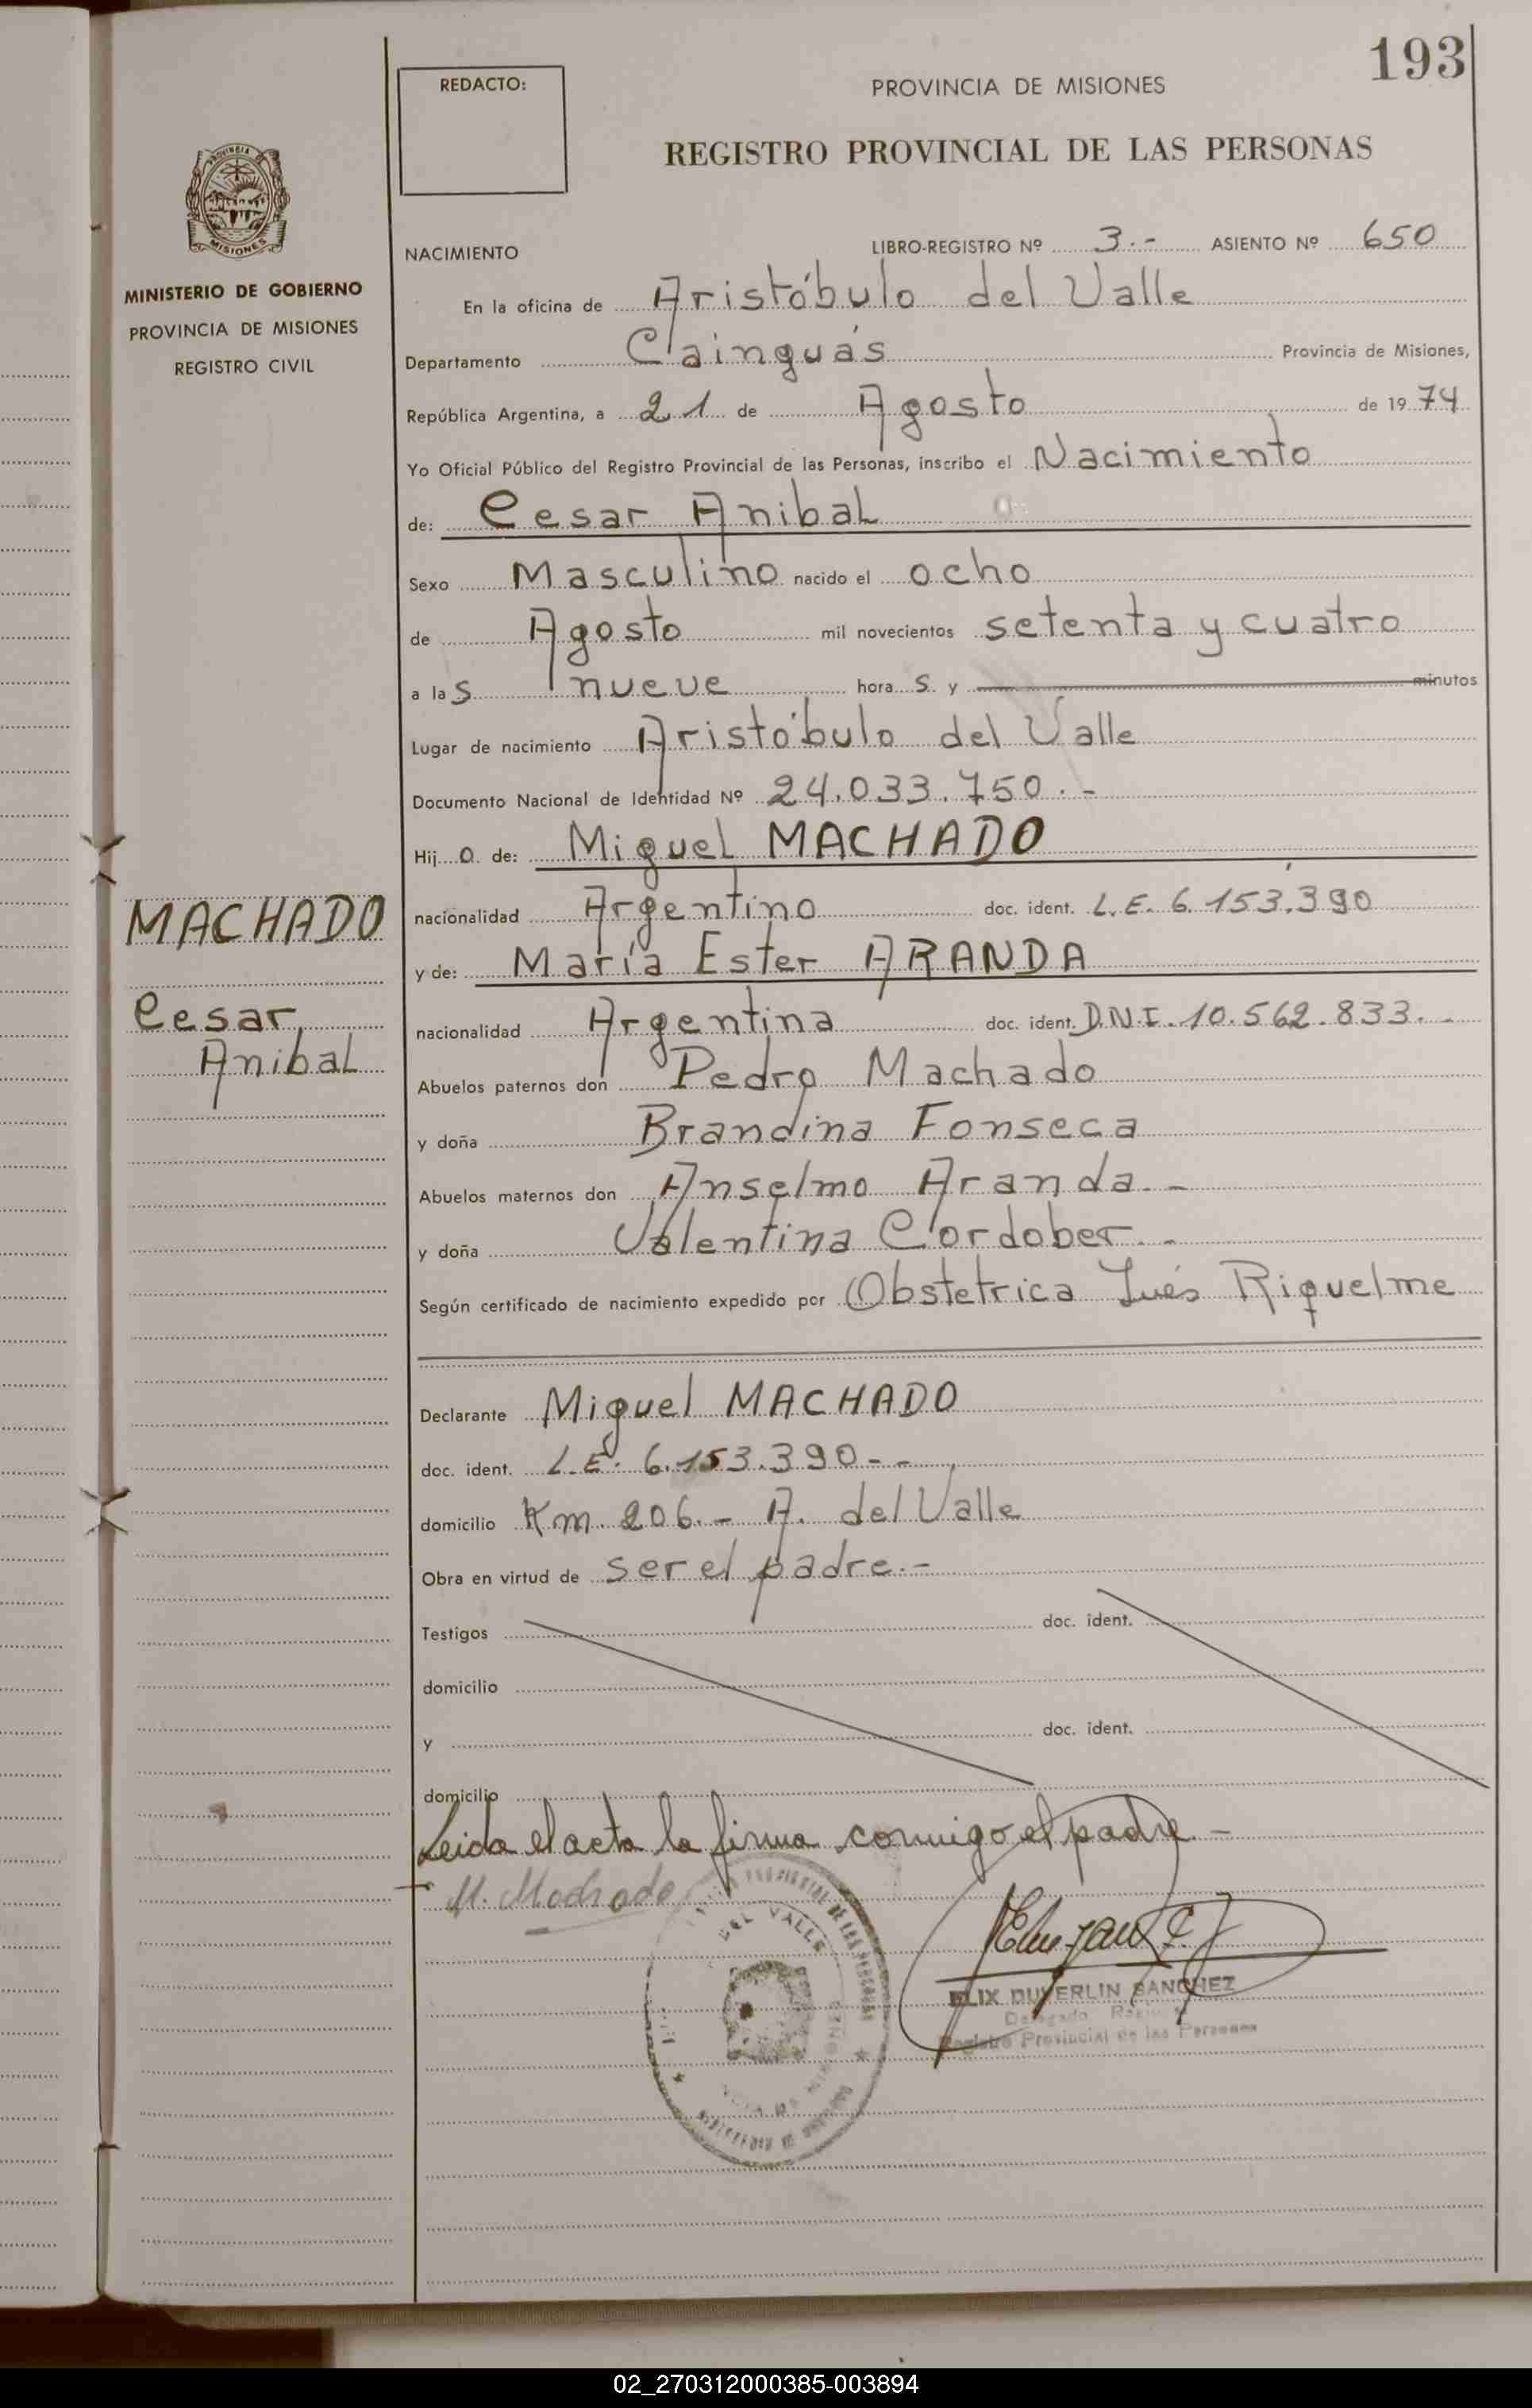 193
REDACTO:
PROVINCIA DE MISIONES
REGISTRO PROVINCIAL DE LAS PERSONAS
MISIONES
MINISTERIO DE GOBIERNO
PROVINCIA DE MISIONES
REGISTRO CIVIL
NACIMIENTO LIBRO-REGISTRO Nº 3.- ASIENTO Nº 650
En la oficina de Aristóbulo del Valle
Departamento Cainguás Provincia de Misiones,
República Argentina, a 21 de Agosto de 1974
Yo Oficial Público del Registro Provincial de las Personas, inscribo el Nacimiento
de: Cesar Anibal
Sexo Masculino nacido el ocho
de Agosto mil novecientos setenta y cuatro
a las nueve horas y minutos
Lugar de nacimiento Aristóbulo del Valle
Documento Nacional de Identidad Nº 24.033.750.-
Hijo de: Miguel MACHADO
MACHADO
nacionalidad Argentino doc. ident. L.E. 6.153.390
y de: María Ester ARANDA
Cesar
Anibal
nacionalidad Argentina doc. ident. D.N.I. 10.562.833.-
Abuelos paternos don Pedro Machado
y doña Brandina Fonseca
Abuelos maternos don Anselmo Aranda.-
y doña Valentina Cordober.-
Según certificado de nacimiento expedido por Obstetrica Inés Riquelme
Declarante Miguel MACHADO
doc. ident. L.E. 6.153.390--
domicilio Km. 206.- A. del Valle
Obra en virtud de ser el padre.-
Testigos doc. ident.
domicilio
y doc. ident.
domicilio
Leida el acta la firma conmigo el padre.-
M. Machado
DEL VALLE
SANCHEZ
Registro Provincial de las Personas
02_270312000385-003894